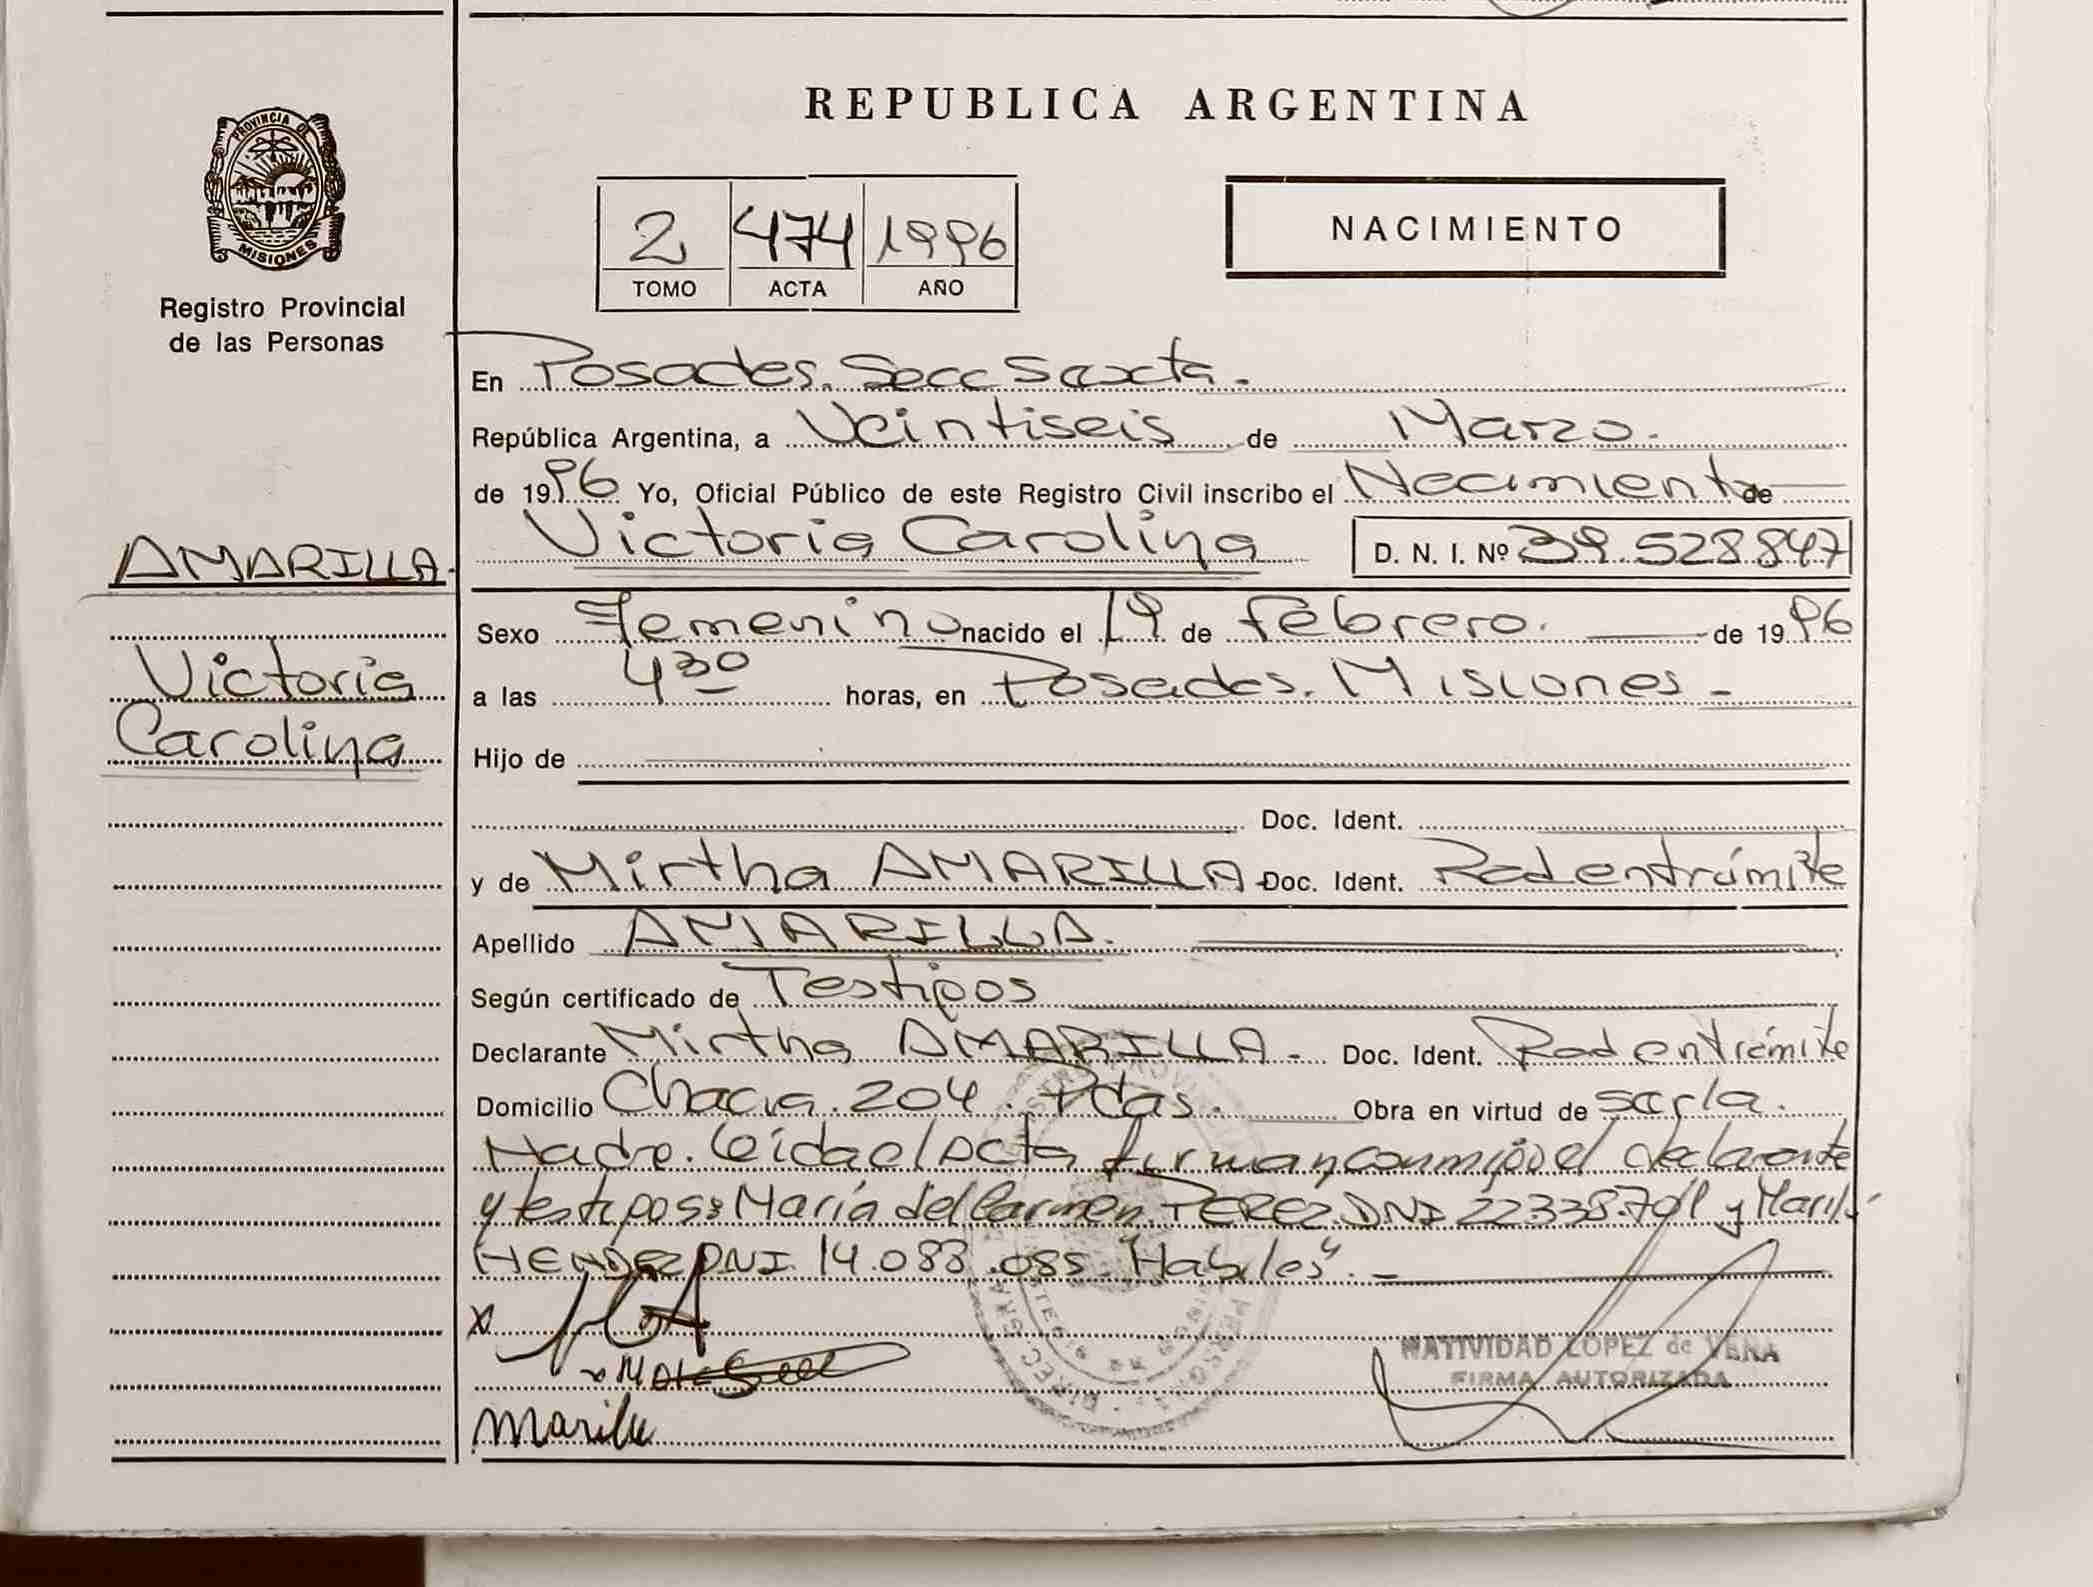 PROVINCIA DE
MISIONES
Registro Provincial
de las Personas
AMARILLA.
Victoria
Carolina
REPUBLICA ARGENTINA
2 474 1996
TOMO ACTA AÑO
NACIMIENTO
En Posadas. Secc Sexta.
República Argentina, a Veintiseis de Marzo.
de 1996 Yo, Oficial Público de este Registro Civil inscribo el Nacimiento de
Victoria Carolina D. N. I. Nº 39.528.847
Sexo Femenino nacido el 19 de Febrero. de 1996
a las 4 30 horas, en Posadas. Misiones -
Hijo de
Doc. Ident.
y de Mirtha AMARILLA Doc. Ident. Rad entrámite
Apellido AMARILLA.
Según certificado de Testigos
Declarante Mirtha AMARILLA. Doc. Ident. Rad entrámite
Domicilio Chacra. 204. Pdas. Obra en virtud de serla.
Madre. leída el Acta firman conmigo el declarante
y testigos: María del Carmen PEREZ. DNI 22.338.701 y Marilú
MENDEZ DNI 14.083.085. "Habiles". -
NATIVIDAD LOPEZ de VERA
FIRMA AUTORIZADA
Marilu